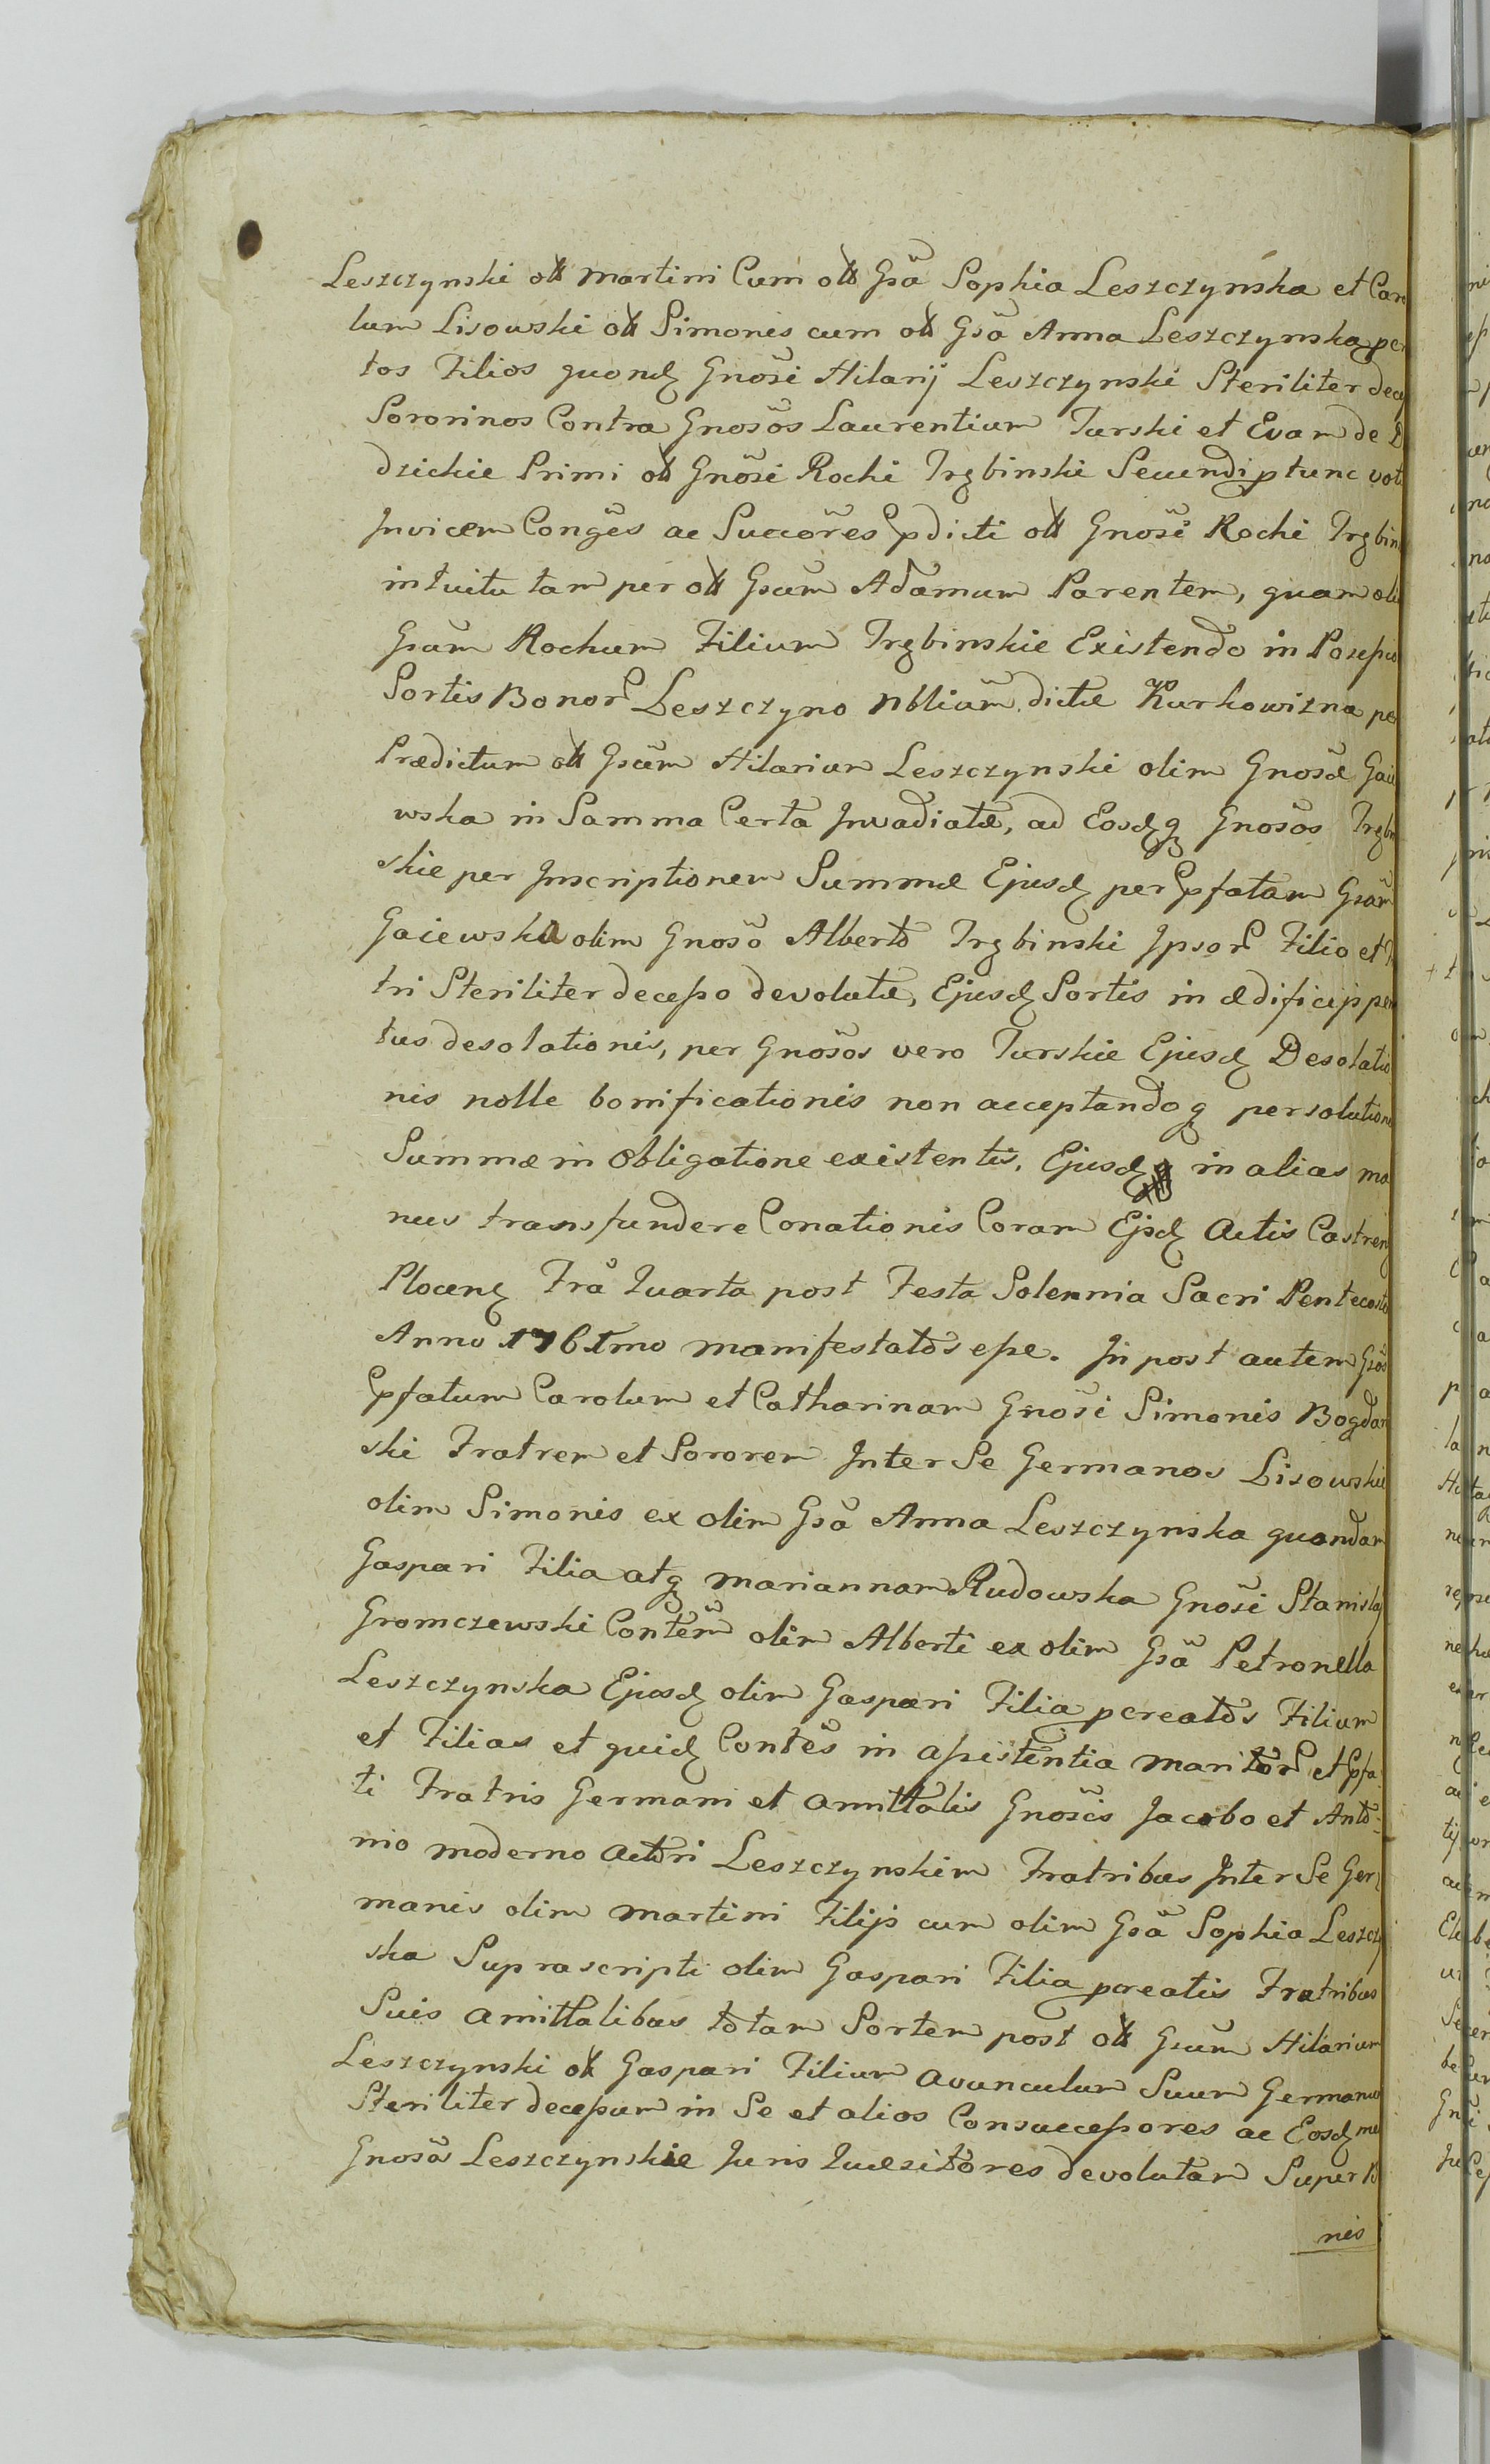 Leszczynski oll Martini Cum oll Gsa Sophia Leszczynska et Caro
lum Lisowski oll Simonis cum oll Gsa Anna Leszczynska pcr
tos Filios quond Gnosi Hilarij Leszczynski Steriliter dece
Sororinos Contra Gnosos Laurentium Turski et Evam de
dzickie Primi oll Gnosi Rochi Trębinski Secundi ptunc voti
Invicem Conges ac Succores Pdicti oll Gnosi Rochi Trębin
intuitu tam per oll Gsum Adamum Parentem, quam oli
Gsum Rochum Filium Trębinskie Existendo in Possessio
Sortis Bonor Leszczyno Nblium dictæ Kurkowizna per
Prædictum oll Gsum Hilarium Leszczynski olim Gnosæ Gaie
wska in Summa Certa Invadiatæ, ad Eosdq Gnosos Trębin
skie per Inscriptionem Summæ Ejusd per Pfatam Gsam
Gaiewska olim Gnoso Alberto Trębinski Ipsor Filio et Fra
tri Steriliter decesso devolutæ, Ejusd Sortis in ædificijs peni
tus desolationis, per Gnosos vero Turskie Ejusd Desolatio
nis nolle bonificationis non acceptandoq persolutione
Summæ in Obligatione existentis, Ejusd in alias ma
nus transfundere Conationis Coram Ejsd Actis Castren
Plocen Fra Quarta post Festa Solennia Sacri Pentecostes
Anno 1761mo manifestatos esse. In post autem Gsos
Pfatum Carolum et Catharinam Gnosi Simonis Bogdan
ski Fratrem et Sororem Inter Se Germanos Lisowskie
olim Simonis ex olim Gsa Anna Leszczynska quondam
Gaspari Filia atq Mariannam Rudowska Gnosi Stanislaj
Gromczewski Contem olim Alberti ex olim Gsa Petronella
Leszczynska Ejusd olim Gaspari Filia pcreatos Filium
et Filias et quid Contes in assistentia Maritor et Pfa
ti Fratris Germani et Amittalis Gnosis Jacobo et Anto-
nio moderno Actori Leszczynskim Fratribus Inter Se Ger
manis olim Martini Filijs cum olim Gsa Sophia Leszczy
ska Suprascripti olim Gaspari Filia pcreatis Fratribus
Suis Amittalibus totam Sortem post oll Gsum Hilarium
Leszczynski oll Gaspari Filium Avunculum Suum Germanum
Steriliter decessum in Se et alios Consuccessores ac Eosd met
Gnosos Leszczynskie Juris Quæsitores devolutam Super
nis